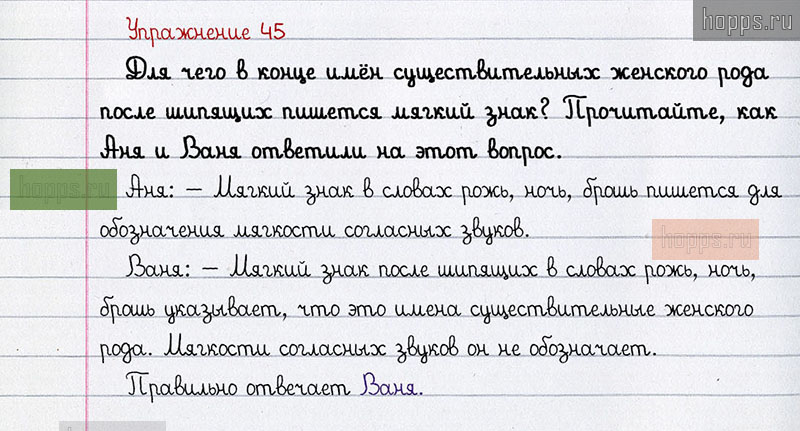 hopps.ru
Упражнение 45
Для чего в конце имён существительных женского рода
после шипящих пишется мягкий знак? Прочитайте, как
Аня и Ваня ответили на этот вопрос.
hopps.ru
Аня: – Мягкий знак в словах рожь, ночь, брошь пишется для
обозначения мягкости согласных звуков.
hopps.ru
Ваня: – Мягкий знак после шипящих в словах рожь, ночь,
брошь указывает, что это имена существительные женского
рода. Мягкости согласных звуков он не обозначает.
Правильно отвечает Ваня.